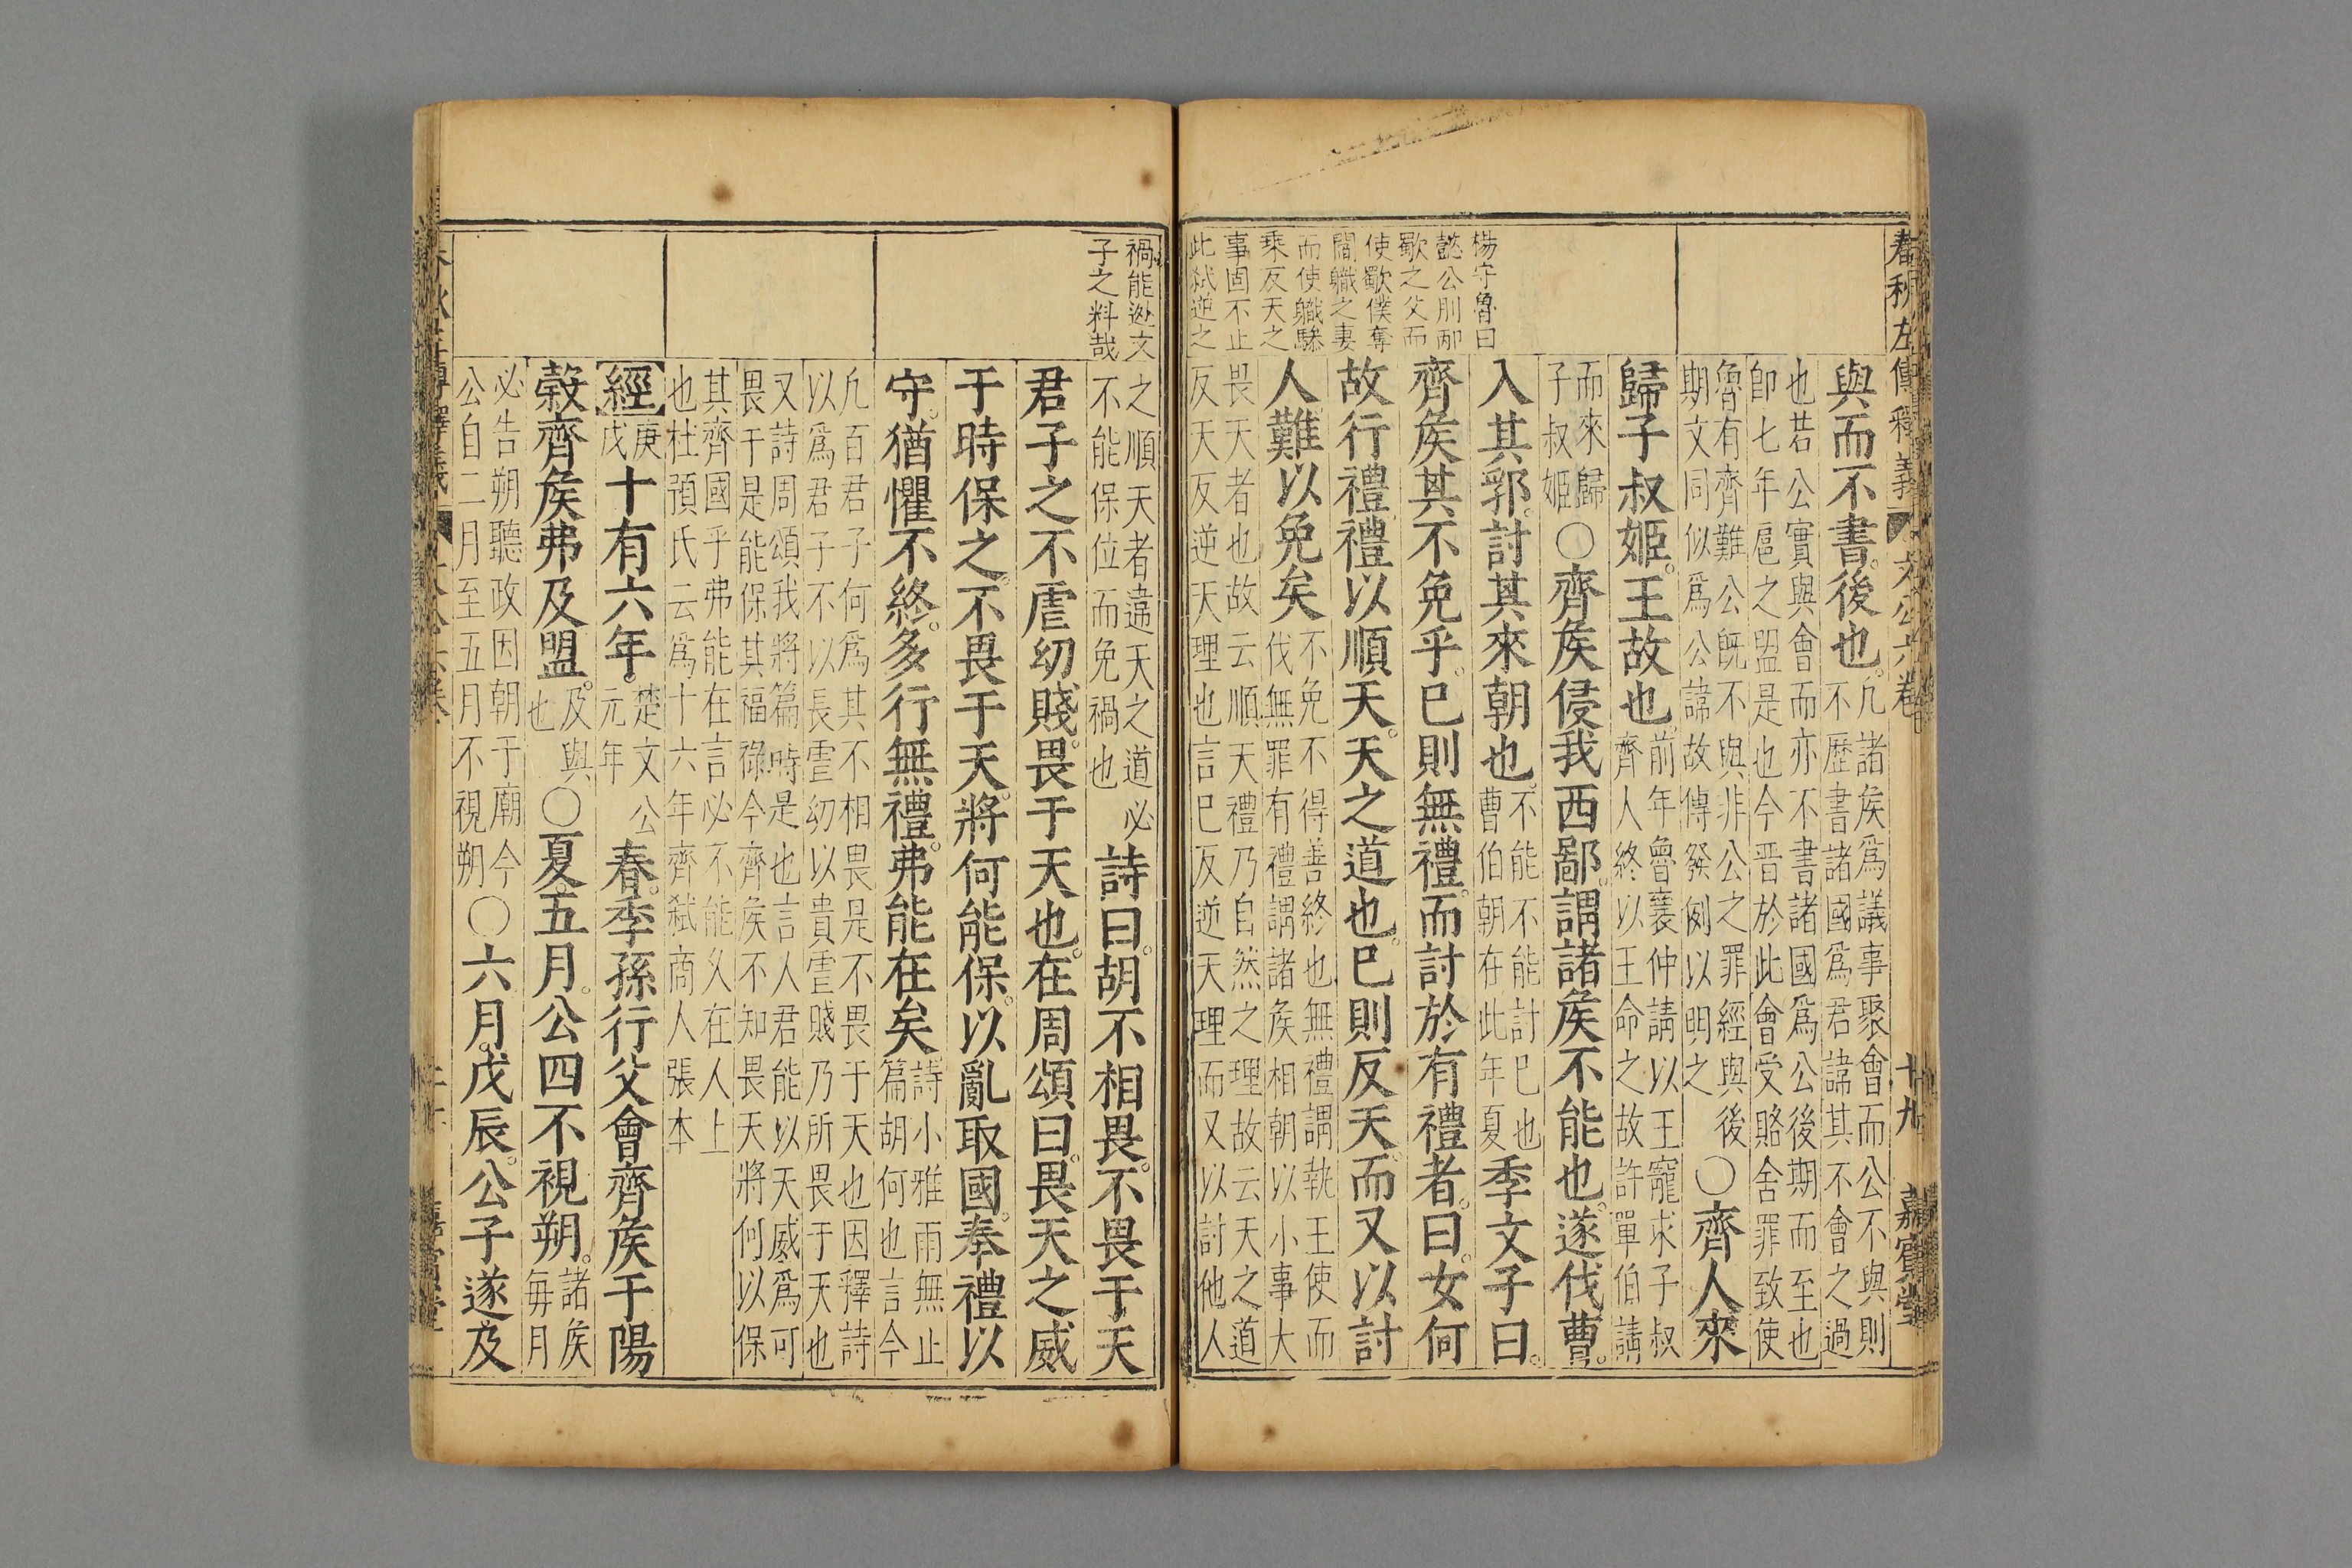 春秋左傳釋義
文公六卷
十九
嘉賓堂
與而不書後也
凢諸矦爲議事聚會而公不與則
不歷書諸國爲君諱其不會之過
也若公實與會而亦不書諸國爲公後期而至也
卽七年扈之盟是也今晋於此會受賂舍罪致使
魯有齊難公旣不與非公之罪經與後
期文同似爲公諱故傳發例以明之
○齊人來
歸子叔姬王故也
前年魯襄仲請以王寵求子叔
齊人終以王命之故許單伯請
而來歸
子叔姬
○齊矦侵我西鄙謂諸矦不能也遂伐曹
入其郛討其來朝也
不能不能討巳也
曹伯朝在此年夏
季文子曰
齊矦其不免乎巳則無禮而討於有禮者曰女何
故行禮禮以順天天之道也巳則反天而又以討
人難以免矣
不免不得善終也無禮謂執王使而
伐無罪有禮謂諸矦相朝以小事大
畏天者也故云順天禮乃自然之理故云天之道
反天反逆天理也言巳反逆天理而又以討他人
楊守魯曰
懿公刖邴
歜之父而
使歜僕奪
閻職之妻
而使職驂
乘反天之
事固不止
此弑逆之
禍能逃文
子之料哉
之順天者違天之道必
不能保位而免禍也
詩曰胡不相畏不畏于天
君子之不虐幼賤畏于天也在周頌曰畏天之威
于時保之不畏于天將何能保以亂取國奉禮以
守猶懼不終多行無禮弗能在矣
詩小雅雨無止
篇胡何也言今
凢百君子何爲其不相畏是不畏于天也因釋詩
以爲君子不以長虐幼以貴虐賤乃所畏于天也
又詩周頌我將篇時是也言人君能以天威爲可
畏于是能保其福祿今齊矦不知畏天將何以保
其齊國乎弗能在言必不能久在人上
也杜預氏云爲十六年齊弑商人張本
經
庚
戌
十有六年
楚文公
元年
春季孫行父會齊矦于陽
穀齊矦弗及盟
及與
也
○夏五月公四不視朔
諸矦
每月
必告朔聽政因朝于廟今
公自二月至五月不視朔
○六月戊辰公子遂及